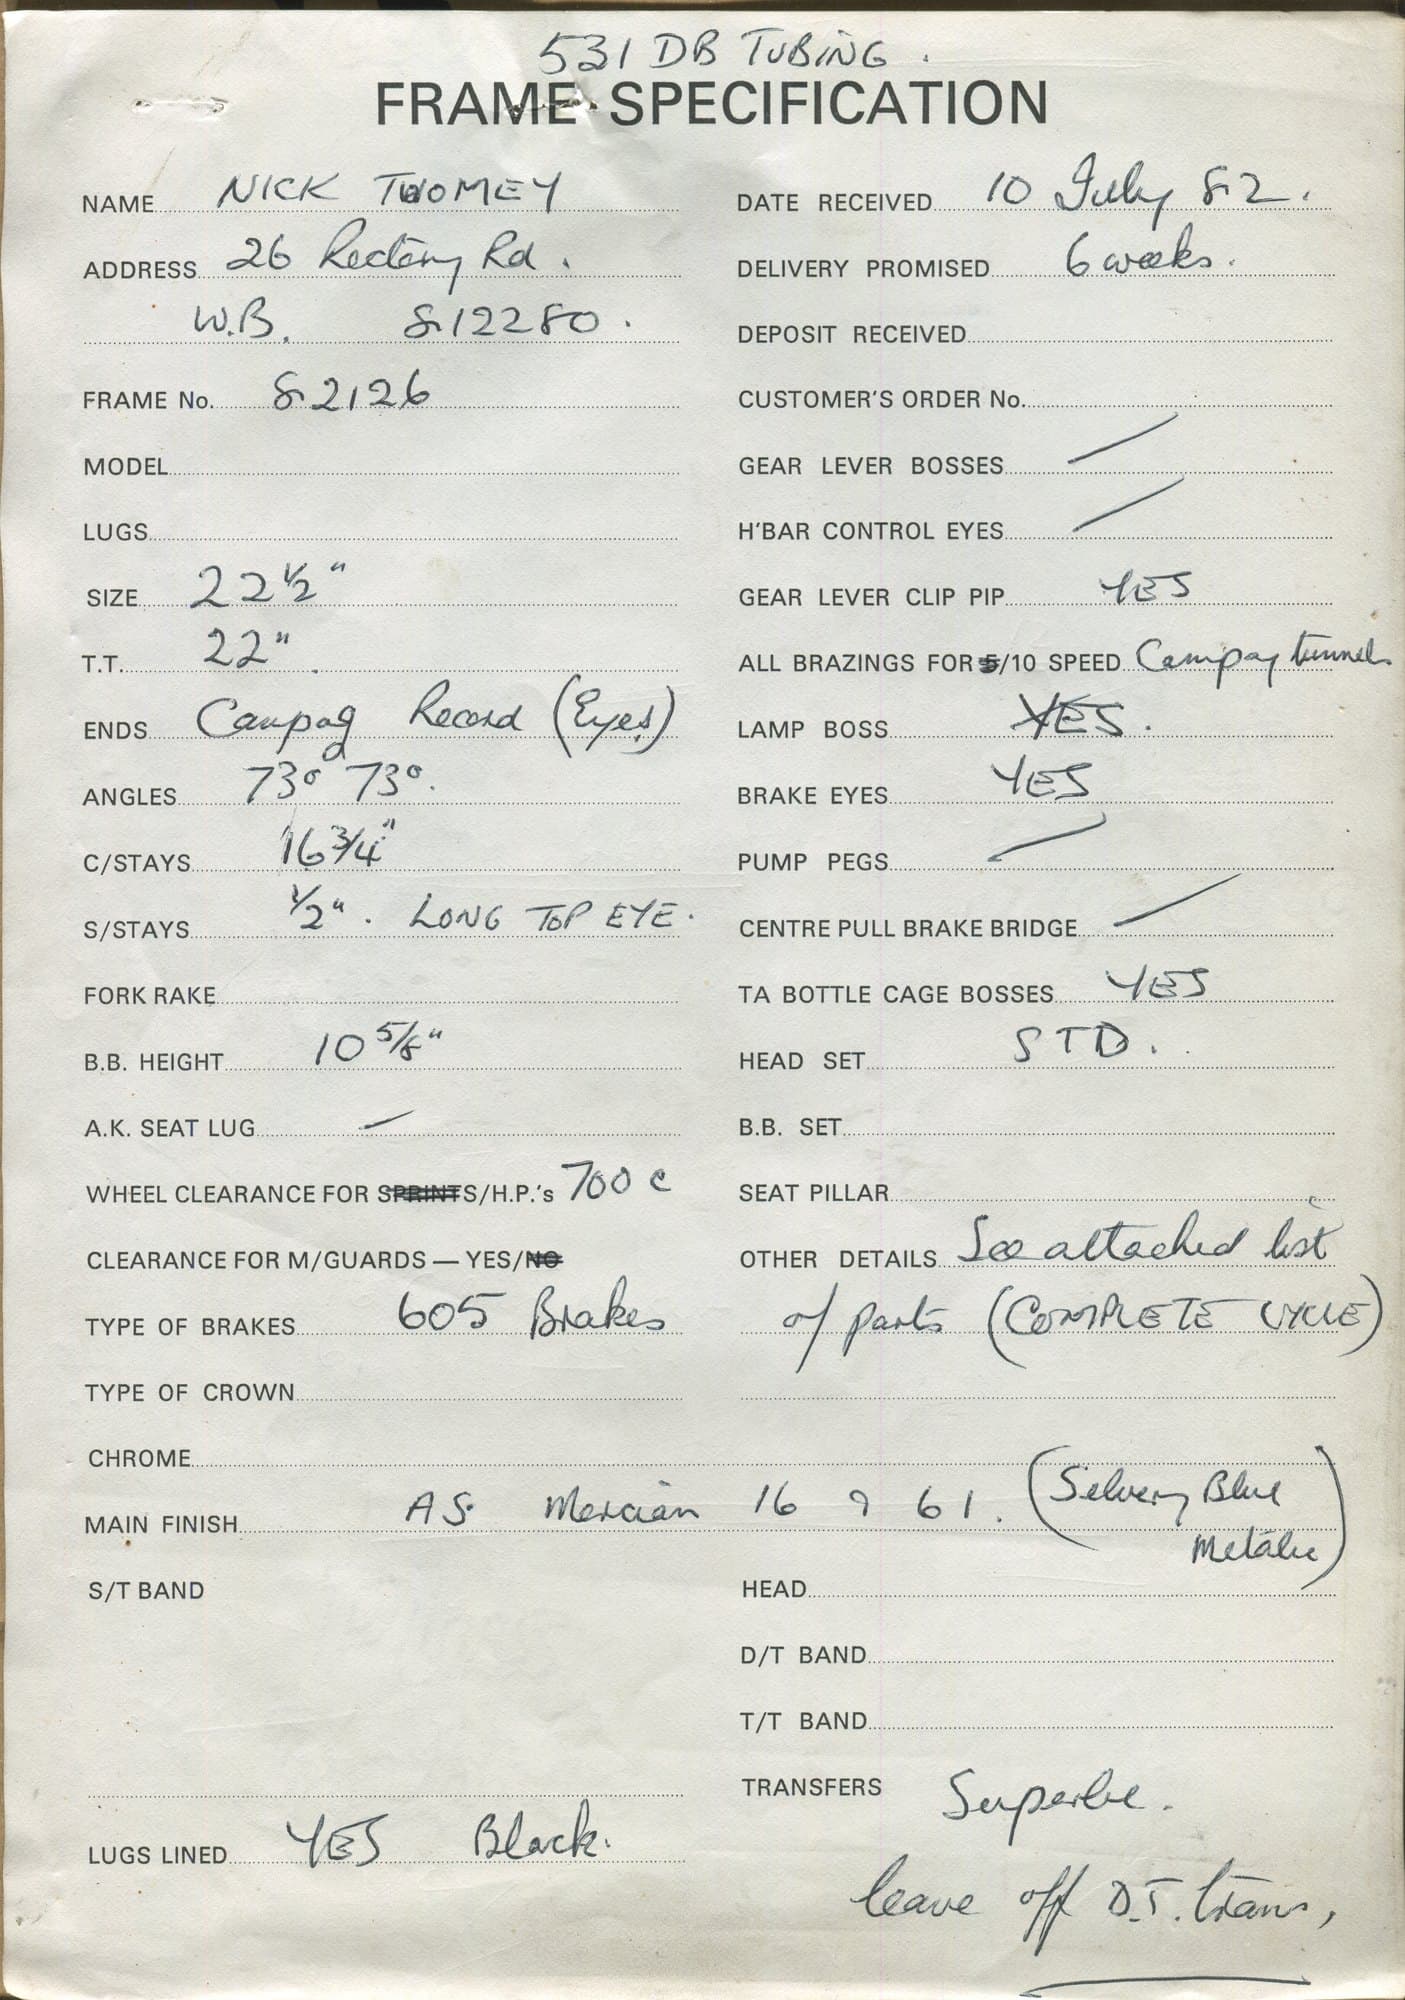 531 DB TUBING.
FRAME SPECIFICATION
NAME NICK TWOMEY
ADDRESS 26 Rectory Rd.
W.B. 812280.
FRAME No. 82126
MODEL
LUGS
SIZE 22 1/2"
T.T. 22"
ENDS Campag Record (Eyes)
ANGLES 73° 73°.
C/STAYS 16 3/4"
S/STAYS 1/2". LONG TOP EYE.
FORK RAKE
B.B. HEIGHT 10 5/8"
A.K. SEAT LUG —
WHEEL CLEARANCE FOR SPRINTS/H.P.'s 700 c
CLEARANCE FOR M/GUARDS — YES/NO
TYPE OF BRAKES 605 Brakes
TYPE OF CROWN
DATE RECEIVED 10 July 82.
DELIVERY PROMISED 6 weeks.
DEPOSIT RECEIVED
CUSTOMER'S ORDER No.
GEAR LEVER BOSSES /
H'BAR CONTROL EYES /
GEAR LEVER CLIP PIP YES
ALL BRAZINGS FOR 5/10 SPEED Campag tunnels
LAMP BOSS YES.
BRAKE EYES YES
PUMP PEGS /
CENTRE PULL BRAKE BRIDGE /
TA BOTTLE CAGE BOSSES YES
HEAD SET STD.
B.B. SET
SEAT PILLAR
OTHER DETAILS See attached list
of parts (COMPLETE CYCLE)
CHROME
MAIN FINISH AS Mercian 16 9 61. (Silvery Blue
Metalic)
S/T BAND
HEAD
D/T BAND
T/T BAND
TRANSFERS Superbe.
LUGS LINED YES Black.
leave off D.T. trans,